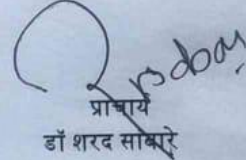 प्राचार्य
डॉ शरद साबारे